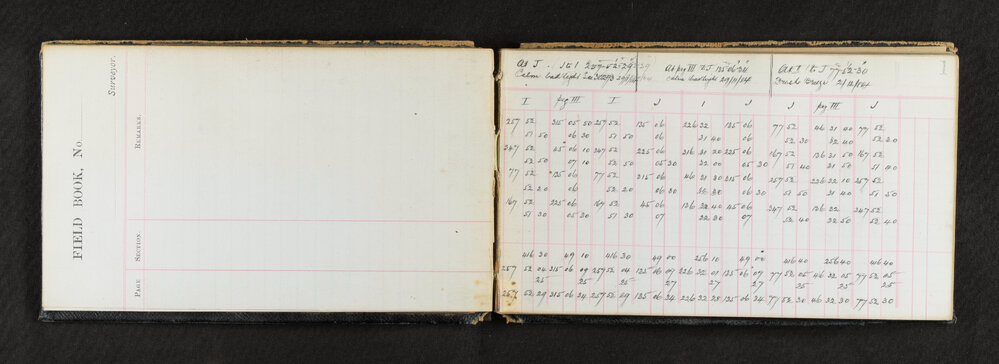 FIELD BOOK, No.
Surveyor.
PAGE SECTION. REMARKS.
At J
Calm bad light
At peg III to J 135 06 34
Calm bad light 29/11/04
At I to J 77 52 30
2/12/04
I peg III I J I J J peg III J
257 52 315 05 50 257 52 135 06 226 32 135 06 77 52 46 31 40 77 52
51 50 06 30 51 50 06 31 40 06 52 30 32 40 52 30
347 52 45 06 10 347 52 225 06 316 31 20 225 06 167 52 136 31 50 167 52
52 50 07 10 52 50 05 30 32 00 05 30 51 40 31 50 51 40
77 52 135 06 77 52 315 06 46 31 30 315 06 257 52 226 32 10 257 52
52 20 06 52 20 06 30 06 30 51 50 31 40 51 50
167 52 225 06 167 52 45 06 136 32 40 45 06 347 52 136 32 347 52
51 30 05 30 51 30 07 32 30 07 52 40 32 50 52 40
416 30 49 10 416 30 49 00 256 10 49 00 416 40 256 40 416 40
257 52 04 315 06 09 257 52 04 135 06 07 226 32 01 135 06 07 77 52 05 46 32 05 77 52 05
25 25 25 27 27 27 25 25 25
257 52 29 315 06 34 257 52 29 135 06 34 226 32 28 135 06 34 77 52 30 46 32 30 77 52 30